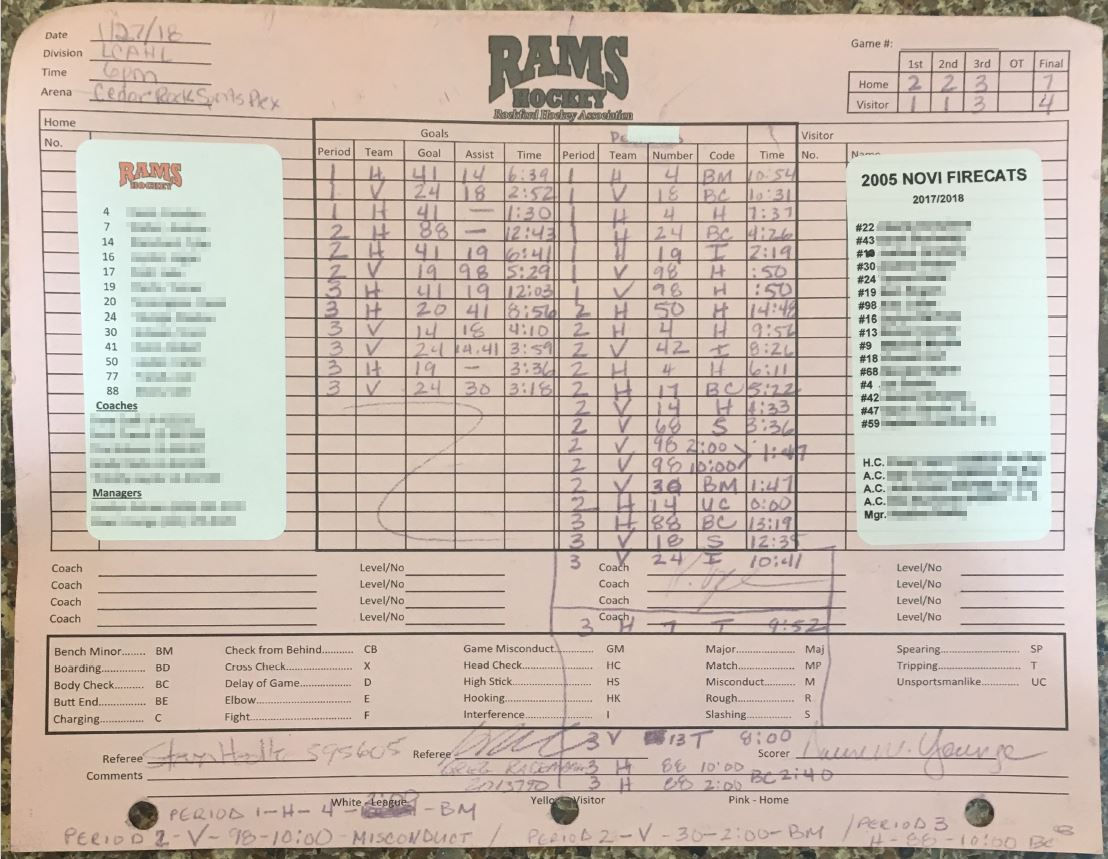 Date 1/27/18
Division LCAHL
Time 6pm
Arena Cedar Rock Sports Plex
RAMS
HOCKEY
Rockford Hockey Association
Game #:
1st 2nd 3rd OT Final
Home 2 2 3 7
Visitor 1 1 3 4
Home
No.
Goals
Period Team Goal Assist Time
1 H 41 14 6:39
1 V 24 18 2:52
1 H 41 — 1:30
2 H 88 — 12:43
2 H 41 19 6:41
2 V 19 98 5:29
3 H 41 19 12:03
3 H 20 41 8:56
3 V 14 18 4:10
3 V 24 14.41 3:59
3 H 19 — 3:36
3 V 24 30 3:18
Period Team Number Code Time
1 H 4 BM 10:54
1 V 18 BC 10:31
1 H 4 H 7:37
1 H 24 BC 4:26
1 H 19 I 2:19
1 V 98 H :50
1 V 98 H :50
2 H 50 H 14:48
2 H 4 H 9:56
2 V 42 I 8:26
2 H 4 H 6:11
2 H 17 BC 5:22
2 V 14 H 4:33
2 V 68 S 3:36
2 V 98 2:00
2 V 98 10:00 1:47
2 V 30 BM 1:47
2 H 14 UC 0:00
3 H 88 BC 13:19
3 V 18 S 12:35
3 V 24 I 10:41
3 H 7 T 9:52
Visitor
No. Name
RAMS
HOCKEY
4
7
14
16
17
19
20
24
30
41
50
77
88
Coaches
Managers
2005 NOVI FIRECATS
2017/2018
#22
#43
#30
#24
#19
#98
#16
#13
#9
#18
#68
#4
#42
#47
#59
H.C.
A.C.
A.C.
A.C.
Mgr.
Coach Level/No Coach Level/No
Coach Level/No Coach Level/No
Coach Level/No Coach Level/No
Coach Level/No Coach Level/No
Bench Minor....... BM Check from Behind........... CB Game Misconduct............ GM Major.................. Maj Spearing................... SP
Boarding............ BD Cross Check..................... X Head Check..................... HC Match................. MP Tripping.................... T
Body Check......... BC Delay of Game.................. D High Stick........................ HS Misconduct......... M Unsportsmanlike....... UC
Butt End............. BE Elbow.............................. E Hooking.......................... HK Rough................. R
Charging............. C Fight................................ F Interference.................... I Slashing............... S
3 V 13 T 8:00
Referee 595605 Referee Scorer
3 H 88 10:00
Comments
3 H 88 2:00 BC 2:40
White - League Yellow - Visitor Pink - Home
PERIOD 1-H-4- -BM
PERIOD 2-V-98-10:00-MISCONDUCT / PERIOD 2-V-30-2:00-BM / PERIOD 3
H-88-10:00 BC